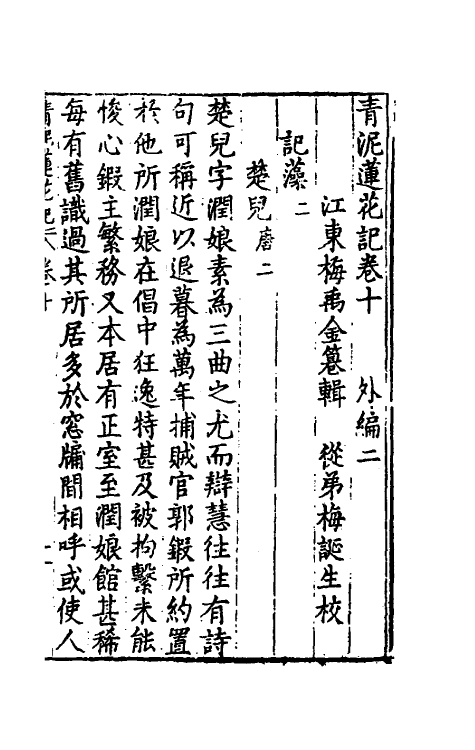 青泥蓮花記卷十　外編二
江東梅禹金纂輯　從弟梅誕生校
記藻二
楚兒唐二
楚兒字潤娘素為三曲之尤而辯慧往往有詩
句可稱近以退暮為萬年捕賊官郭鍜所約置
於他所潤娘在倡中狂逸特甚及被拘繫未能
悛心鍜主繁務又本居有正室至潤娘館甚稀
每有舊識過其所居多於窓牖間相呼或使人
青泥蓮花記 卷十 一